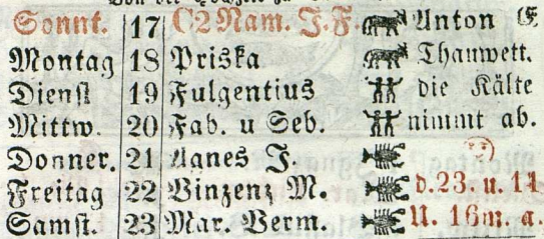 Sonnt. 17 C2 Nam. J. F. Anton E
Montag 18 Priska Thauwett.
Dienst 19 Fulgentius die Kälte
Mittw. 20 Fab. u Seb. nimmt ab.
Donner. 21 Agnes J.
Freitag 22 Vinzenz M. d. 23. u. 11
Samst. 23 Mar. Verm. U. 16m. a.